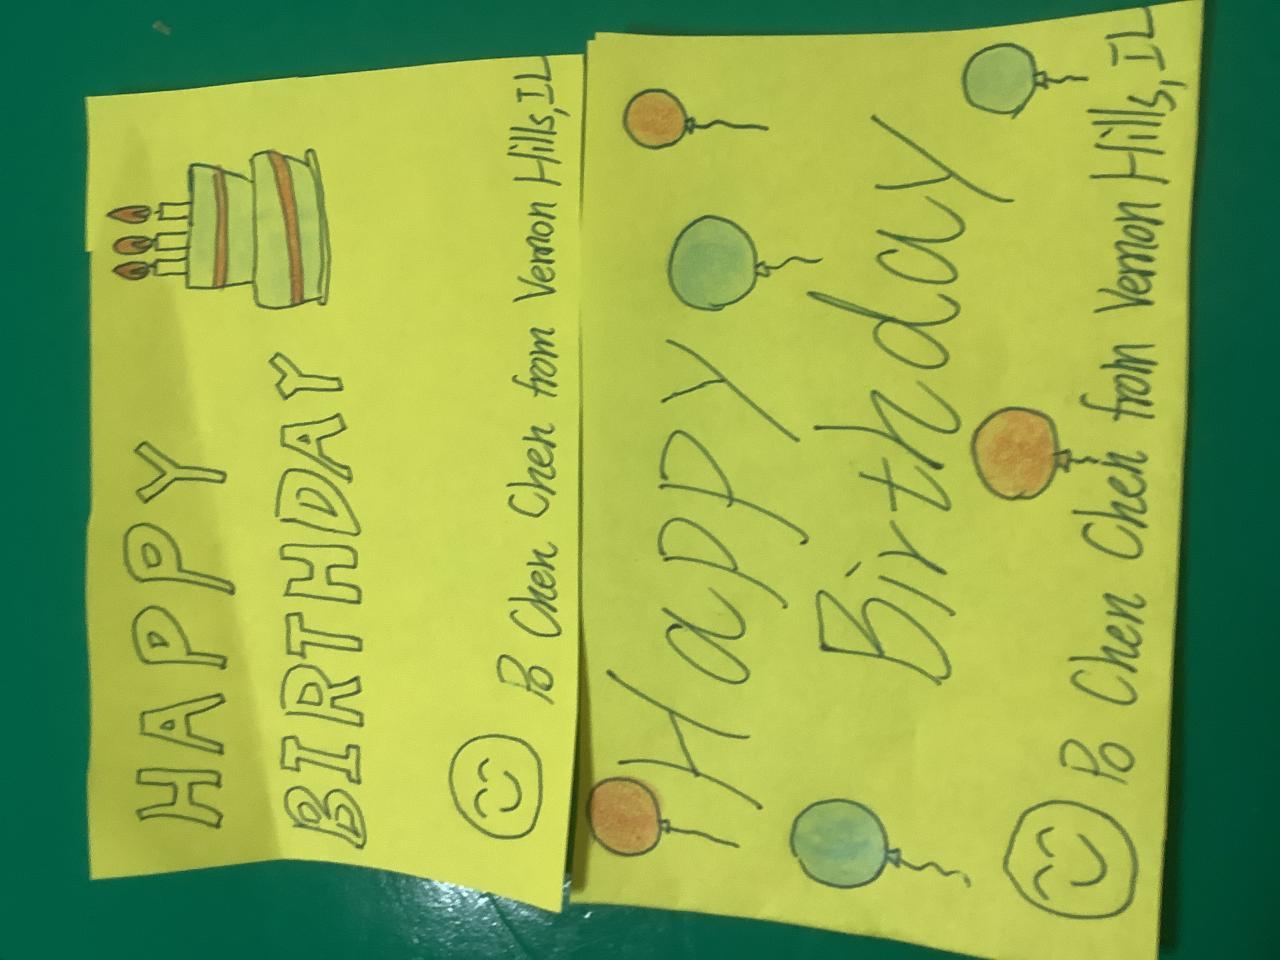 HAPPY
BIRTHDAY
Po Chen Chen from Vernon Hills, IL
Happy
Birthday
Po Chen Chen from Vernon Hills, IL